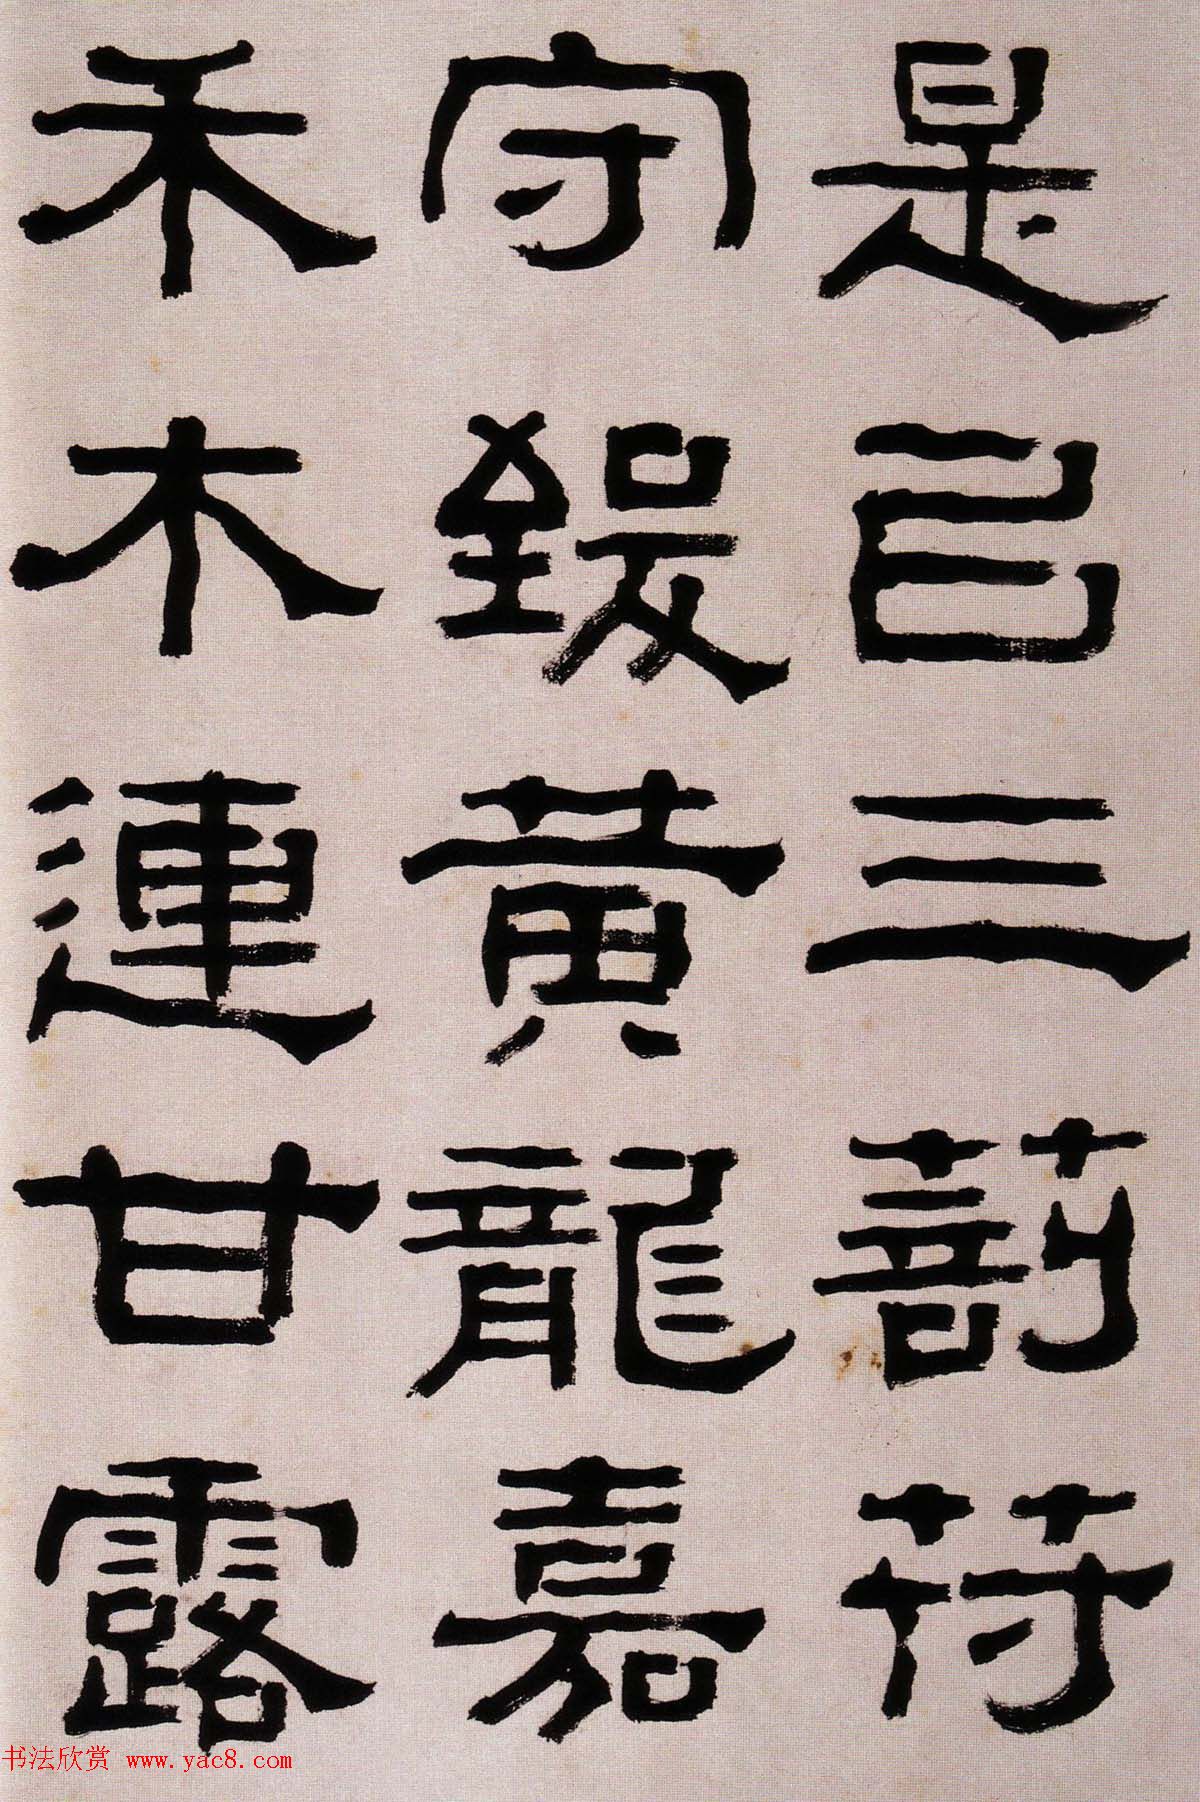 是㠯三剖符
守致黃龍嘉
禾木連甘露
书法欣赏 www.yac8.com